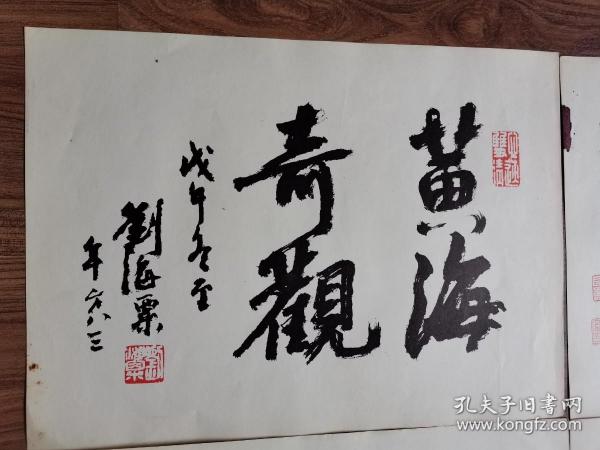 黄海
奇觀
戊午冬至
劉海粟
年方八三
孔夫子旧书网
www.kongfz.com